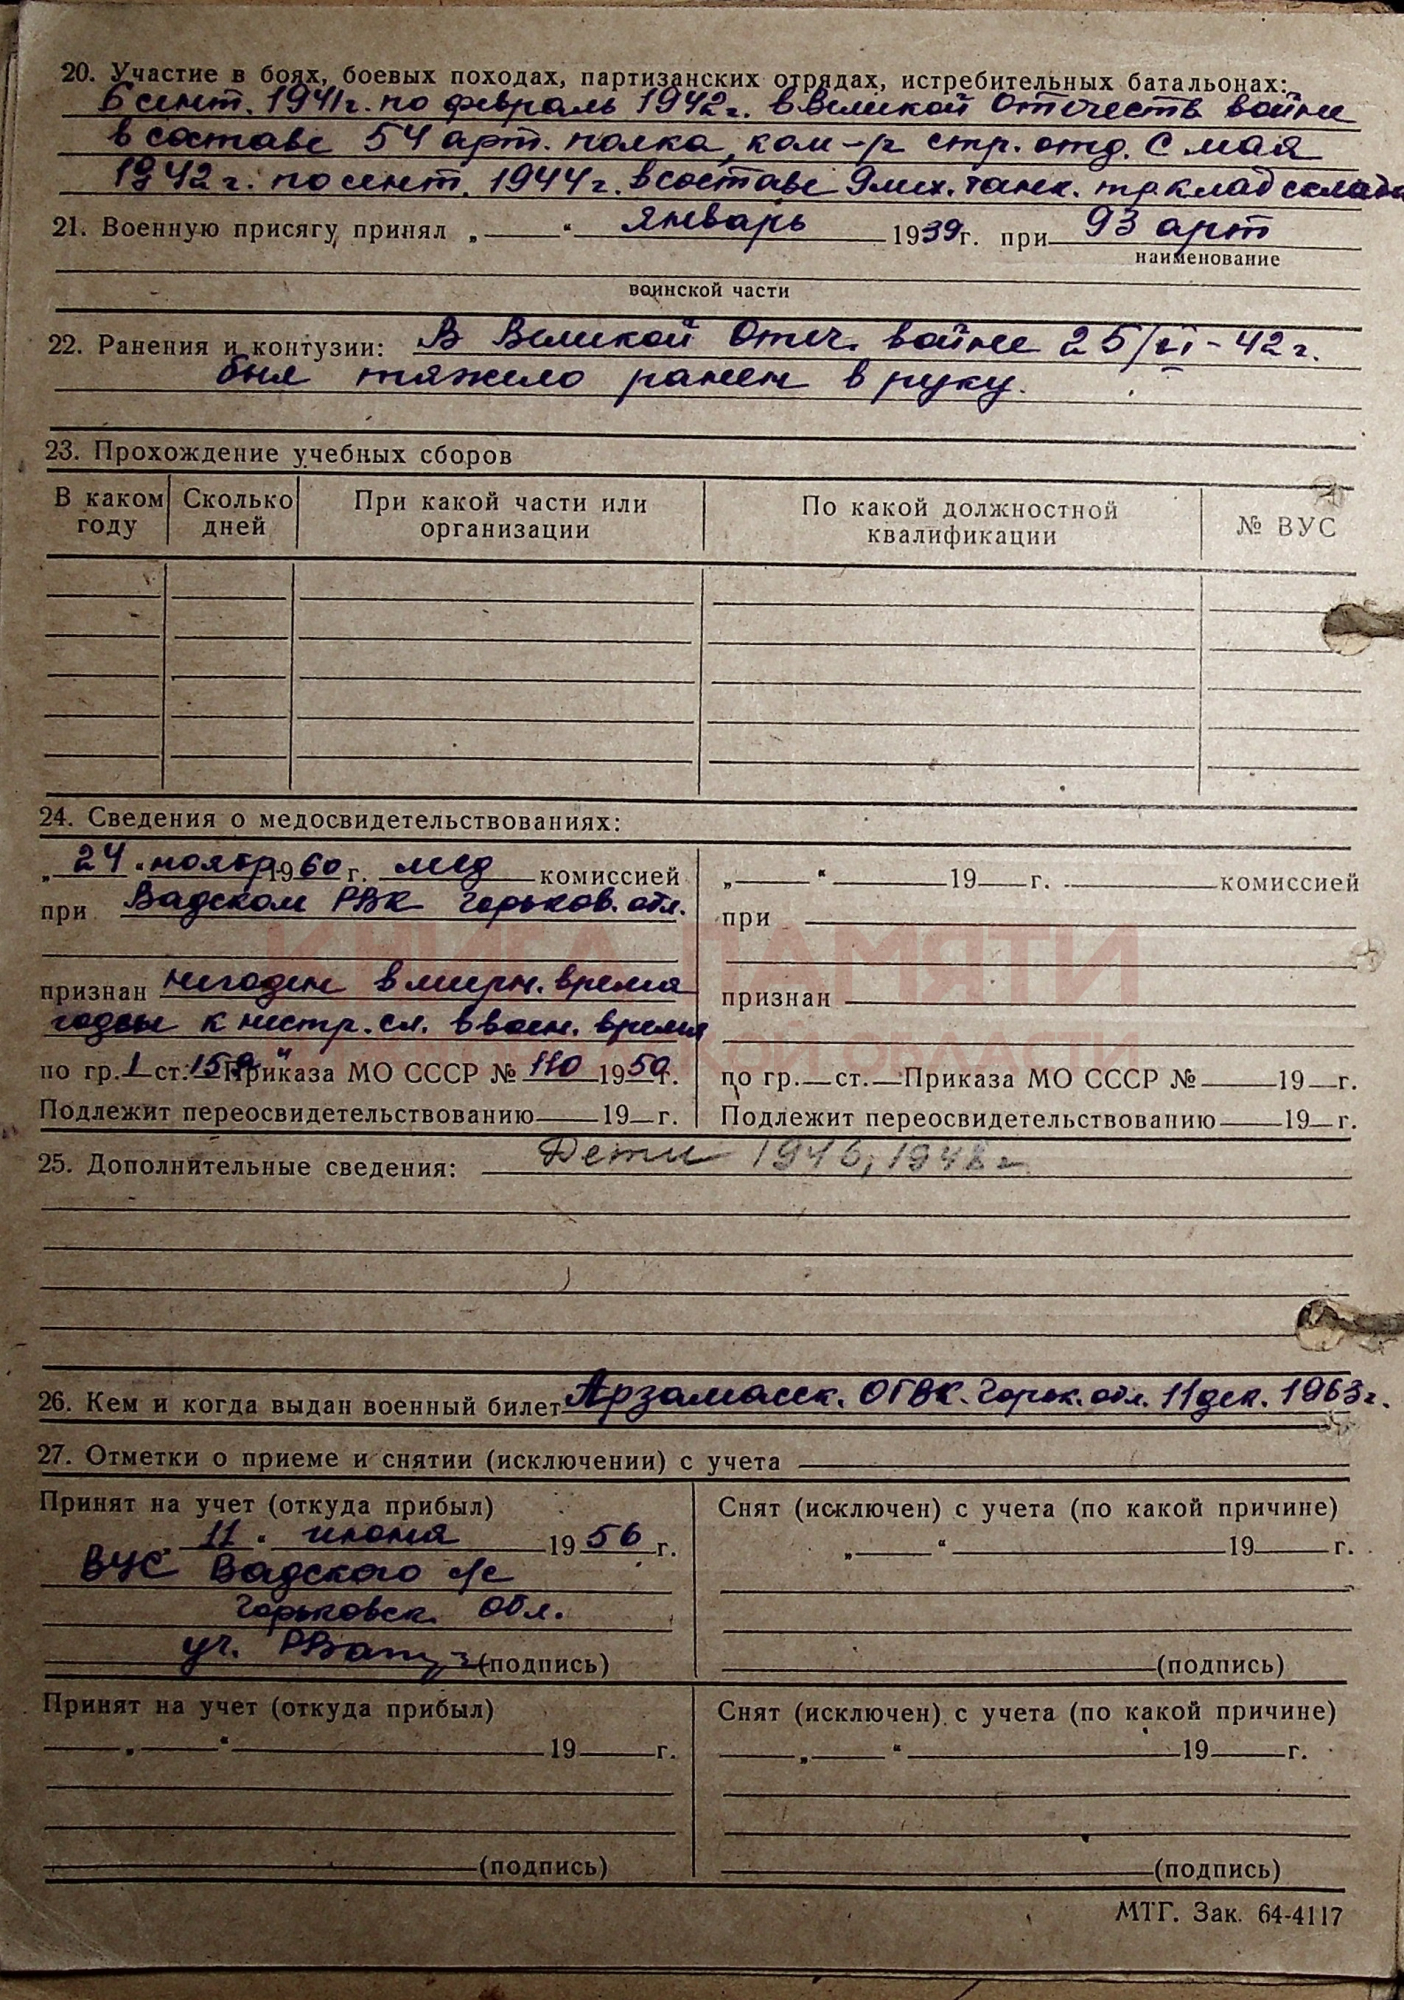 20. Участие в боях, боевых походах, партизанских отрядах, истребительных батальонах:
6 сент. 1941 г. по февраль 1942 г. в Великой Отечеств войне
в составе 54 арт. полка, ком-р стр. отд. С мая
1942 г. по сент. 1944 г. в составе 9 мех. танк. склад
21. Военную присягу принял „ “ январь 1939 г. при 93 арт
наименование
воинской части
22. Ранения и контузии: В Великой Отеч. войне 25/II-42 г.
был тяжело ранен в руку.
23. Прохождение учебных сборов
В каком году Сколько дней При какой части или организации По какой должностной квалификации № ВУС
24. Сведения о медосвидетельствованиях:
„24“ ноябр 1960 г. мед комиссией
при Вадском РВК Горьков. обл.
признан негоден в мирн. время
годен к нестр. сл. в воен. время
по гр. I ст. 15 Приказа МО СССР № 110 1950 г.
Подлежит переосвидетельствованию 19 г.
„ “ 19 г. комиссией
при
признан
по гр. ст. Приказа МО СССР № 19 г.
Подлежит переосвидетельствованию 19 г.
КНИГА ПАМЯТИ
НИЖЕГОРОДСКОЙ ОБЛАСТИ
25. Дополнительные сведения: Дети 1946, 1948 г.
26. Кем и когда выдан военный билет Арзамасск. ОГВК. Горьк. обл. 11 дек. 1963 г.
27. Отметки о приеме и снятии (исключении) с учета
Принят на учет (откуда прибыл)
„11“ июня 1956 г.
ВУС Вадского с/с
Горьковск. обл.
(подпись)
Снят (исключен) с учета (по какой причине)
„ “ 19 г.
(подпись)
Принят на учет (откуда прибыл)
„ “ 19 г.
(подпись)
Снят (исключен) с учета (по какой причине)
„ “ 19 г.
(подпись)
МТГ. Зак. 64-4117